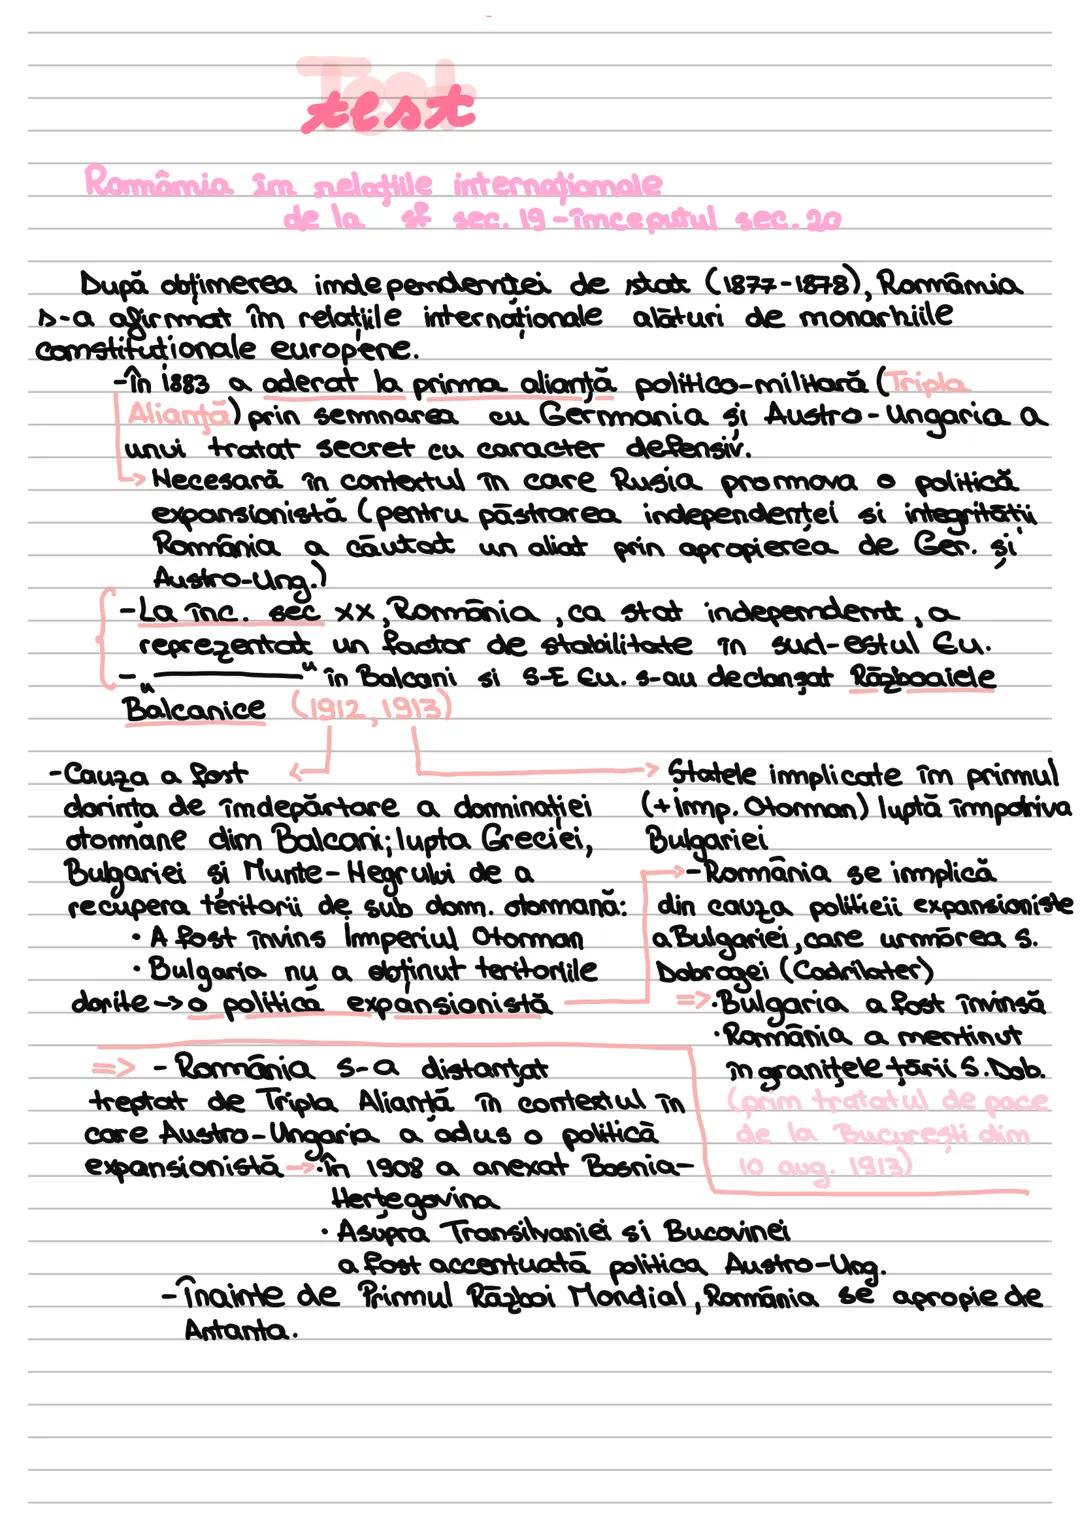 test
România în relațiile internaționale
de la sf sec. 19 - începutul sec. 20
După obținerea independenței de stat (1877-1878), România
s-a afirmat în relațiile internaționale alături de monarhiile
constituționale europene.
- în 1883 a aderat la prima alianță politico-militară (Tripla
Alianță) prin semnarea cu Germania și Austro-Ungaria a
unui tratat secret cu caracter defensiv.
→ Necesară în contextul în care Rusia promova o politică
expansionistă (pentru păstrarea independenței si integrității
România a căutat un aliat prin apropierea de Ger. și
Austro-Ung.)
- La înc. sec XX, România, ca stat independent, a
reprezentat un factor de stabilitate în sud-estul Eu.
- " ———— " în Balcani si S-E Eu. s-au declanșat Războaiele
Balcanice (1912, 1913)
- Cauza a fost
dorința de îndepărtare a dominației
otomane din Balcani; lupta Greciei,
Bulgariei și Munte-Negrului de a
recupera teritorii de sub dom. otomană:
• A fost învins Imperiul Otoman
• Bulgaria nu a obținut teritoriile
dorite → o politică expansionistă
→ Statele implicate în primul
(+ imp. Otoman) luptă împotriva
Bulgariei
→ - România se implică
din cauza politicii expansioniste
a Bulgariei, care urmărea S.
Dobrogei (Cadrilater)
=> • Bulgaria a fost învinsă
• România a mentinut
în granițele țării S. Dob.
(prin tratatul de pace
de la București din
10 aug. 1913)
=> - România s-a distanțat
treptat de Tripla Alianță în contextul în
care Austro-Ungaria a adus o politică
expansionistă → • în 1908 a anexat Bosnia-
Herțegovina
• Asupra Transilvaniei si Bucovinei
a fost accentuată politica Austro-Ung.
- Înainte de Primul Război Mondial, România se apropie de
Antanta.